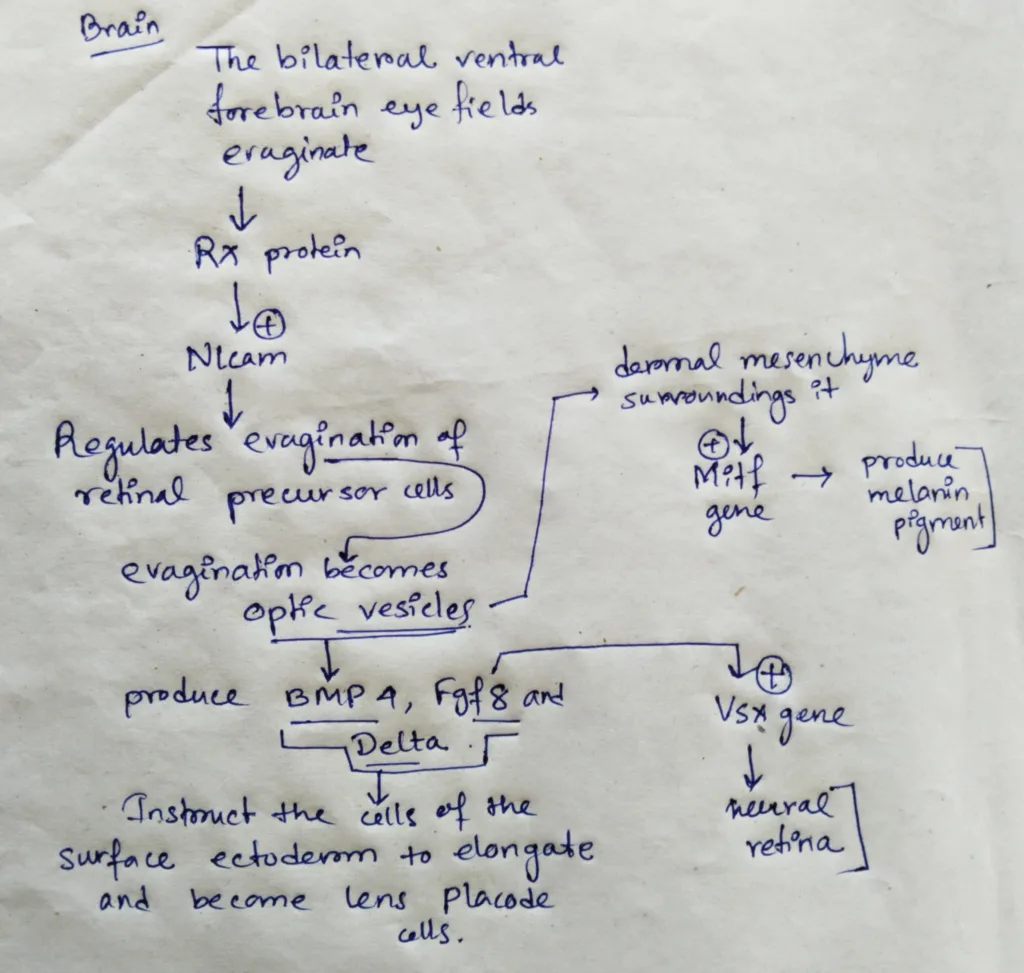 Brain
The bilateral ventral
forebrain eye fields
evaginate
↓
Rx protein
↓ ⊕
Nlcam
↓
Regulates evagination of
retinal precursor cells
evagination becomes
optic vesicles
↓
produce BMP 4, Fgf 8 and
Delta.
↓
Instruct the cells of the
surface ectoderm to elongate
and become lens placode
cells.
dermal mesenchyme
surroundings it
⊕ ↓
Mitf → produce
gene melanin
pigment
⊕
Vsx gene
↓
neural
retina